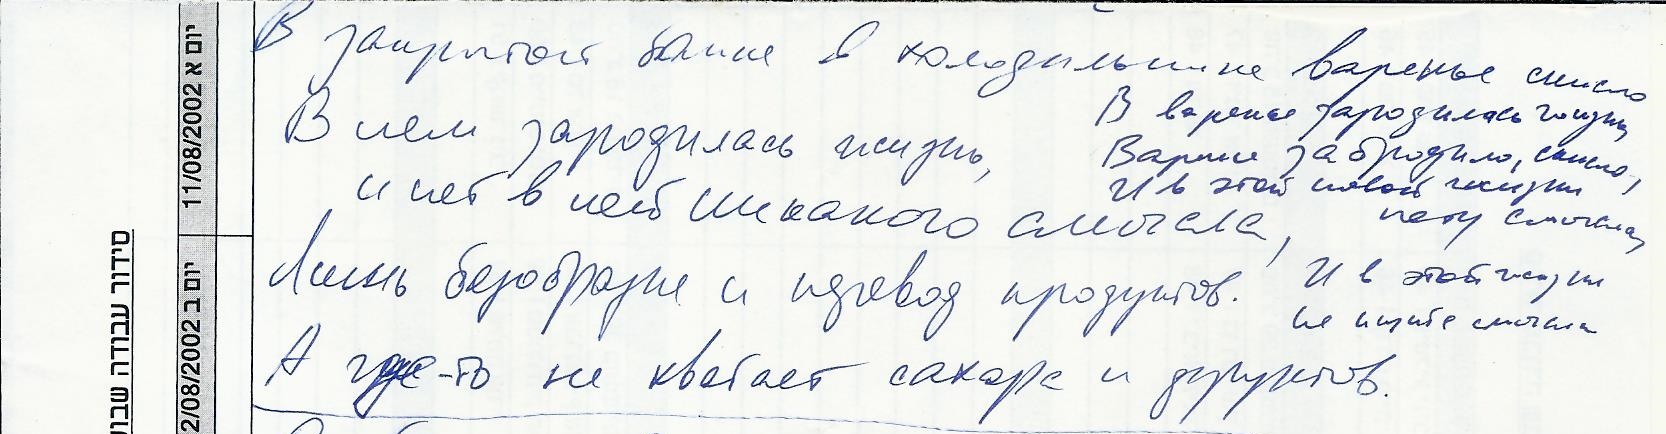 В закрытой банке в холодильнике варенье скисло
В нем зародилась жизнь,
и нет в ней никакого смысла,
Лишь безобразие и перевод продуктов.
А где-то не хватает сахара и фруктов.
В варенье зародилась жизнь
Варенье забродило, скисло,
И в этой новой жизни
нету смысла,
И в этой жизни
не ищите смысла
יום א 11/08/2002
יום ב 2/08/2002
סידור עבודה שבוע